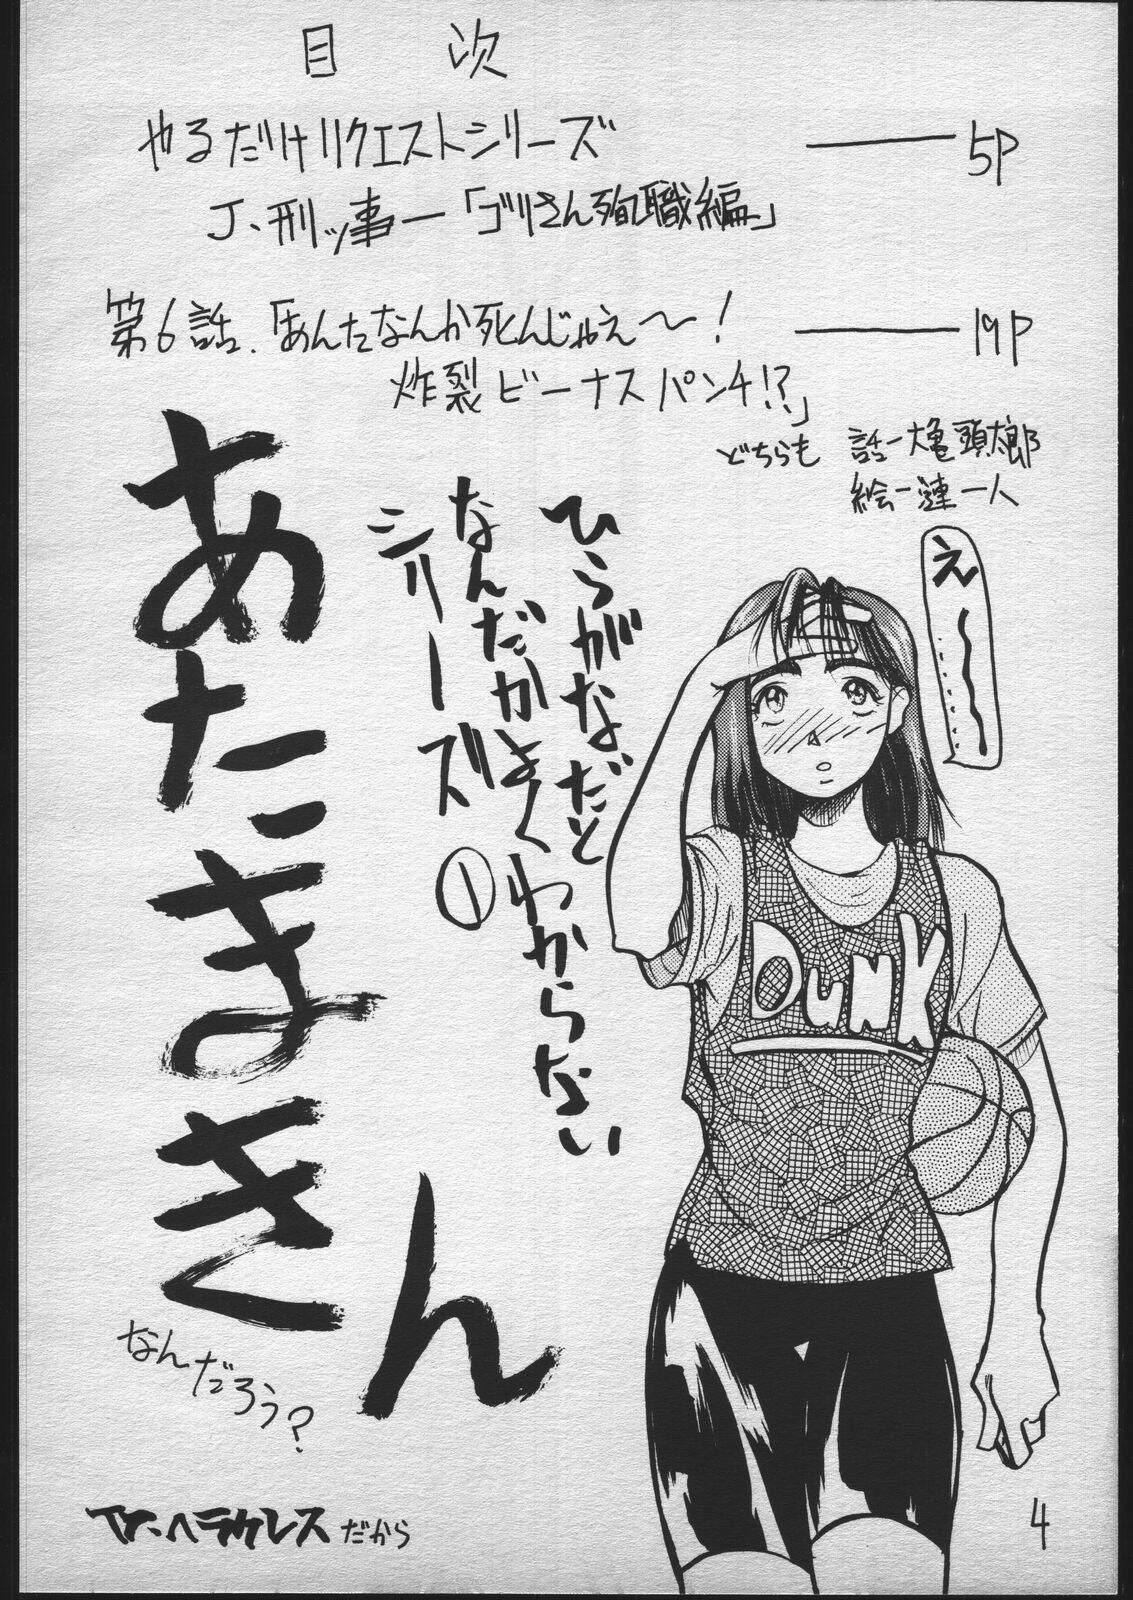 目次
やるだけリクエストシリーズ ―― 5P
J、刑ッ事ー「ゴリさん殉職編」
第6話、「あんたなんか死んじゃえ〜！ ―― 19P
炸裂ビーナスパンチ!?」
どちらも 話ー大亀頭太郎
絵ー漣一人
え〜……
ひらがなだと
なんだかよくわからない
シリーズ①
あたまきん
なんだろう？
DUNK
ヘラクレスだから
4